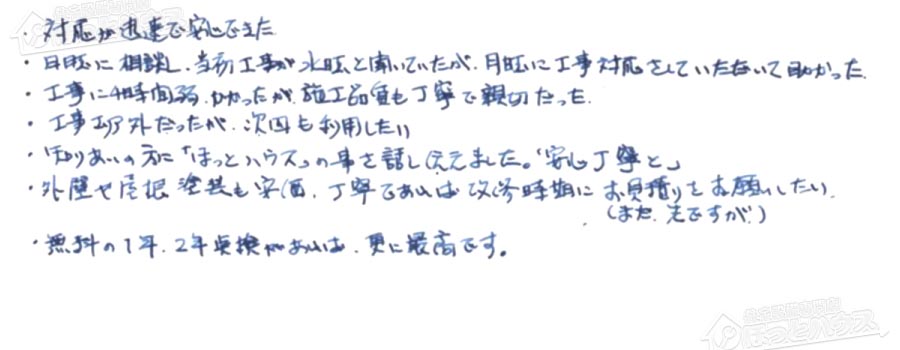 ・対応が迅速で安心できた
・日曜に相談し、当初工事が水曜と聞いていたが、月曜に工事対応をしていただいて助かった。
・工事に4時間弱かかったが、施工品質も丁寧で親切だった。
・工事エリア外だったが、次回も利用したい
・知りあいの方に「ほっとハウス」の事を話し伝えました。「安心丁寧と」
・外壁や屋根塗装も安価、丁寧であれば改修時期にお見積りをお願いしたい。
(まだ、先ですが)
・無料の1年、2年点検があれば、更に最高です。
ほっとハウス
ほっとハウス